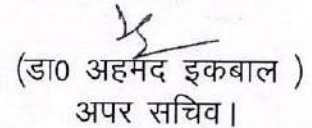 (डा0 अहमद इकबाल )
अपर सचिव।